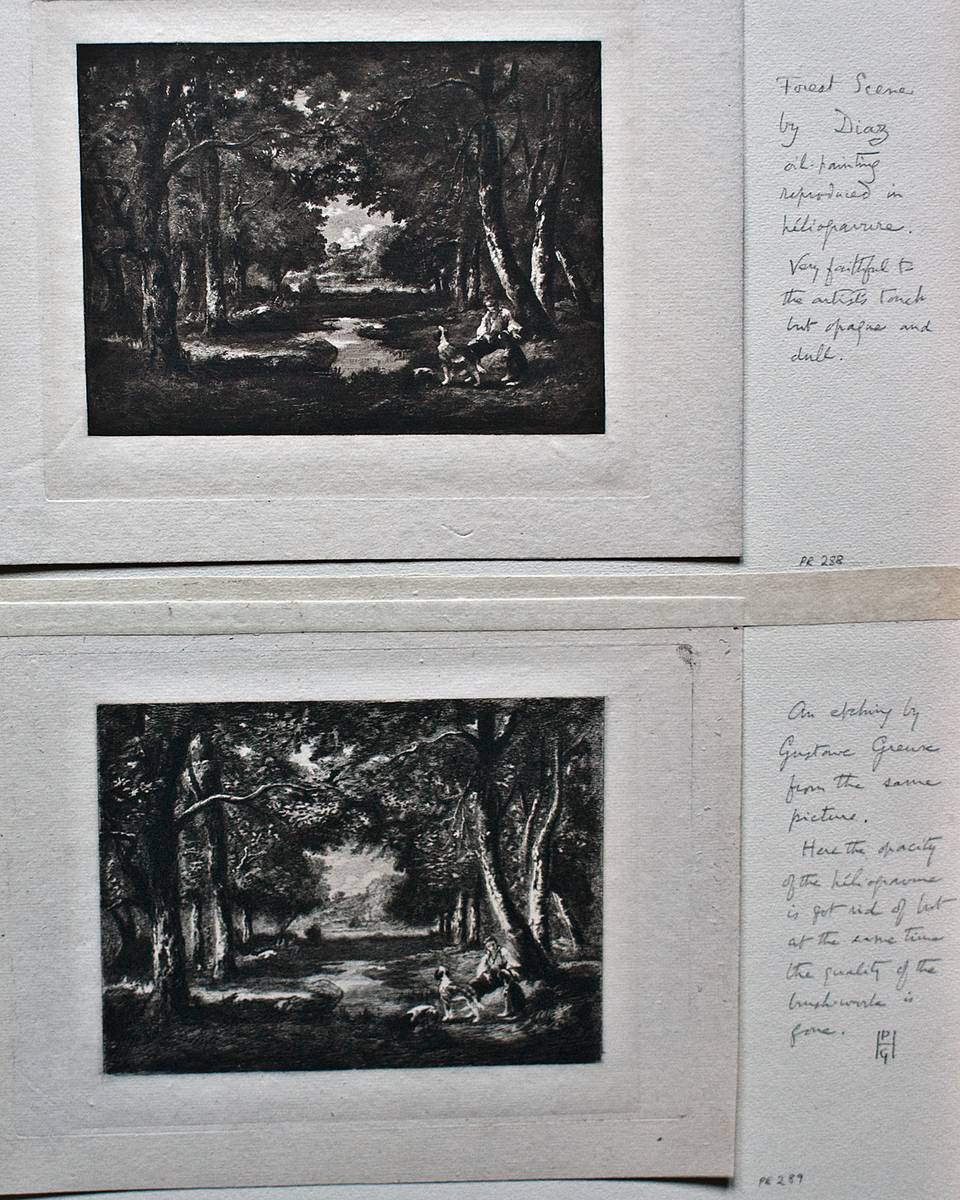 Forest Scene
by Diaz
oil-painting
reproduced in
héliogravure.
Very faithful to
the artist's touch
but opaque and
dull.
PR 288
An etching by
Gustave Greux
from the same
picture.
Here the opacity
of the héliogravure
is got rid of but
at the same time
the quality of the
brush-work is
gone.
PR 289